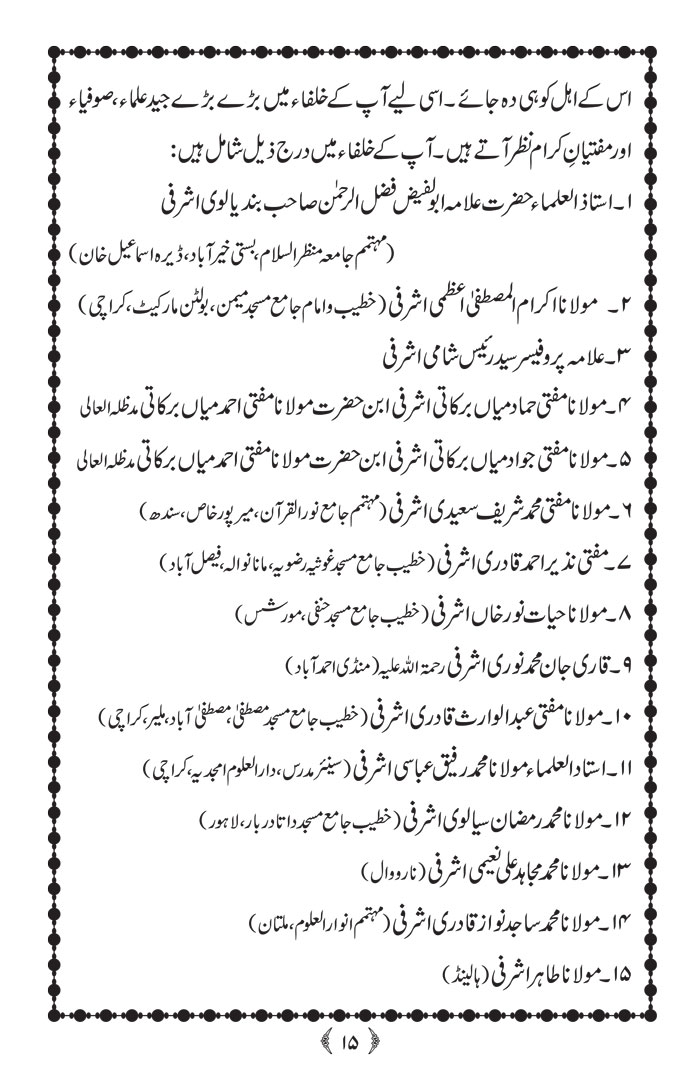 اس کے اہل کو ہی دہ جائے ۔اسی لیے آپ کے خلفاء میں بڑے بڑے جید علماء ،صوفیاء
اور مفتیانِ کرام نظر آتے ہیں ۔آپ کے خلفاء میں درج ذیل شامل ہیں:
۱۔استاذ العلماء حضرت علامہ ابوالفیض فضل الرحمٰن صاحب بندیالوی اشرفی
(مہتمم جامعہ منظر السلام، بستی خیر آباد، ڈیرہ اسماعیل خان)
۲۔ مولانا اکرام المصطفیٰ اعظمی اشرفی (خطیب و امام جامع مسجد میمن، بولٹن مارکیٹ، کراچی)
۳۔علامہ پروفیسر سید رئیس شامی اشرفی
۴۔مولانا مفتی حماد میاں برکاتی اشرفی ابن حضرت مولانا مفتی احمد میاں برکاتی مدظلہ العالی
۵۔مولانا مفتی جواد میاں برکاتی اشرفی ابن حضرت مولانا مفتی احمد میاں برکاتی مدظلہ العالی
۶۔مولانا مفتی محمد شریف سعیدی اشرفی (مہتمم جامع نور القرآن، میر پور خاص، سندھ)
۷۔مفتی نذیر احمد قادری اشرفی (خطیب جامع مسجد غوثیہ رضویہ، مانانوالہ، فیصل آباد)
۸۔مولانا حیات نور خاں اشرفی (خطیب جامع مسجد حنفی، مورشس)
۹۔قاری جان محمد نوری اشرفی رحمۃ اللہ علیہ (منڈی احمد آباد)
۱۰۔مولانا مفتی عبدالوارث قادری اشرفی (خطیب جامع مسجد مصطفیٰ، مصطفیٰ آباد، ملیر، کراچی)
۱۱۔استاد العلماء مولانا محمد رفیق عباسی اشرفی (سینئر مدرس، دارالعلوم امجدیہ، کراچی)
۱۲۔مولانا محمد رمضان سیالوی اشرفی (خطیب جامع مسجد داتا دربار، لاہور)
۱۳۔مولانا محمد مجاہد علی نعیمی اشرفی (نارووال)
۱۴۔مولانا محمد ساجد نواز قادری اشرفی (مہتمم انوار العلوم، ملتان)
۱۵۔مولانا طاہر اشرفی (ہالینڈ)
﴿ ۱۵ ﴾